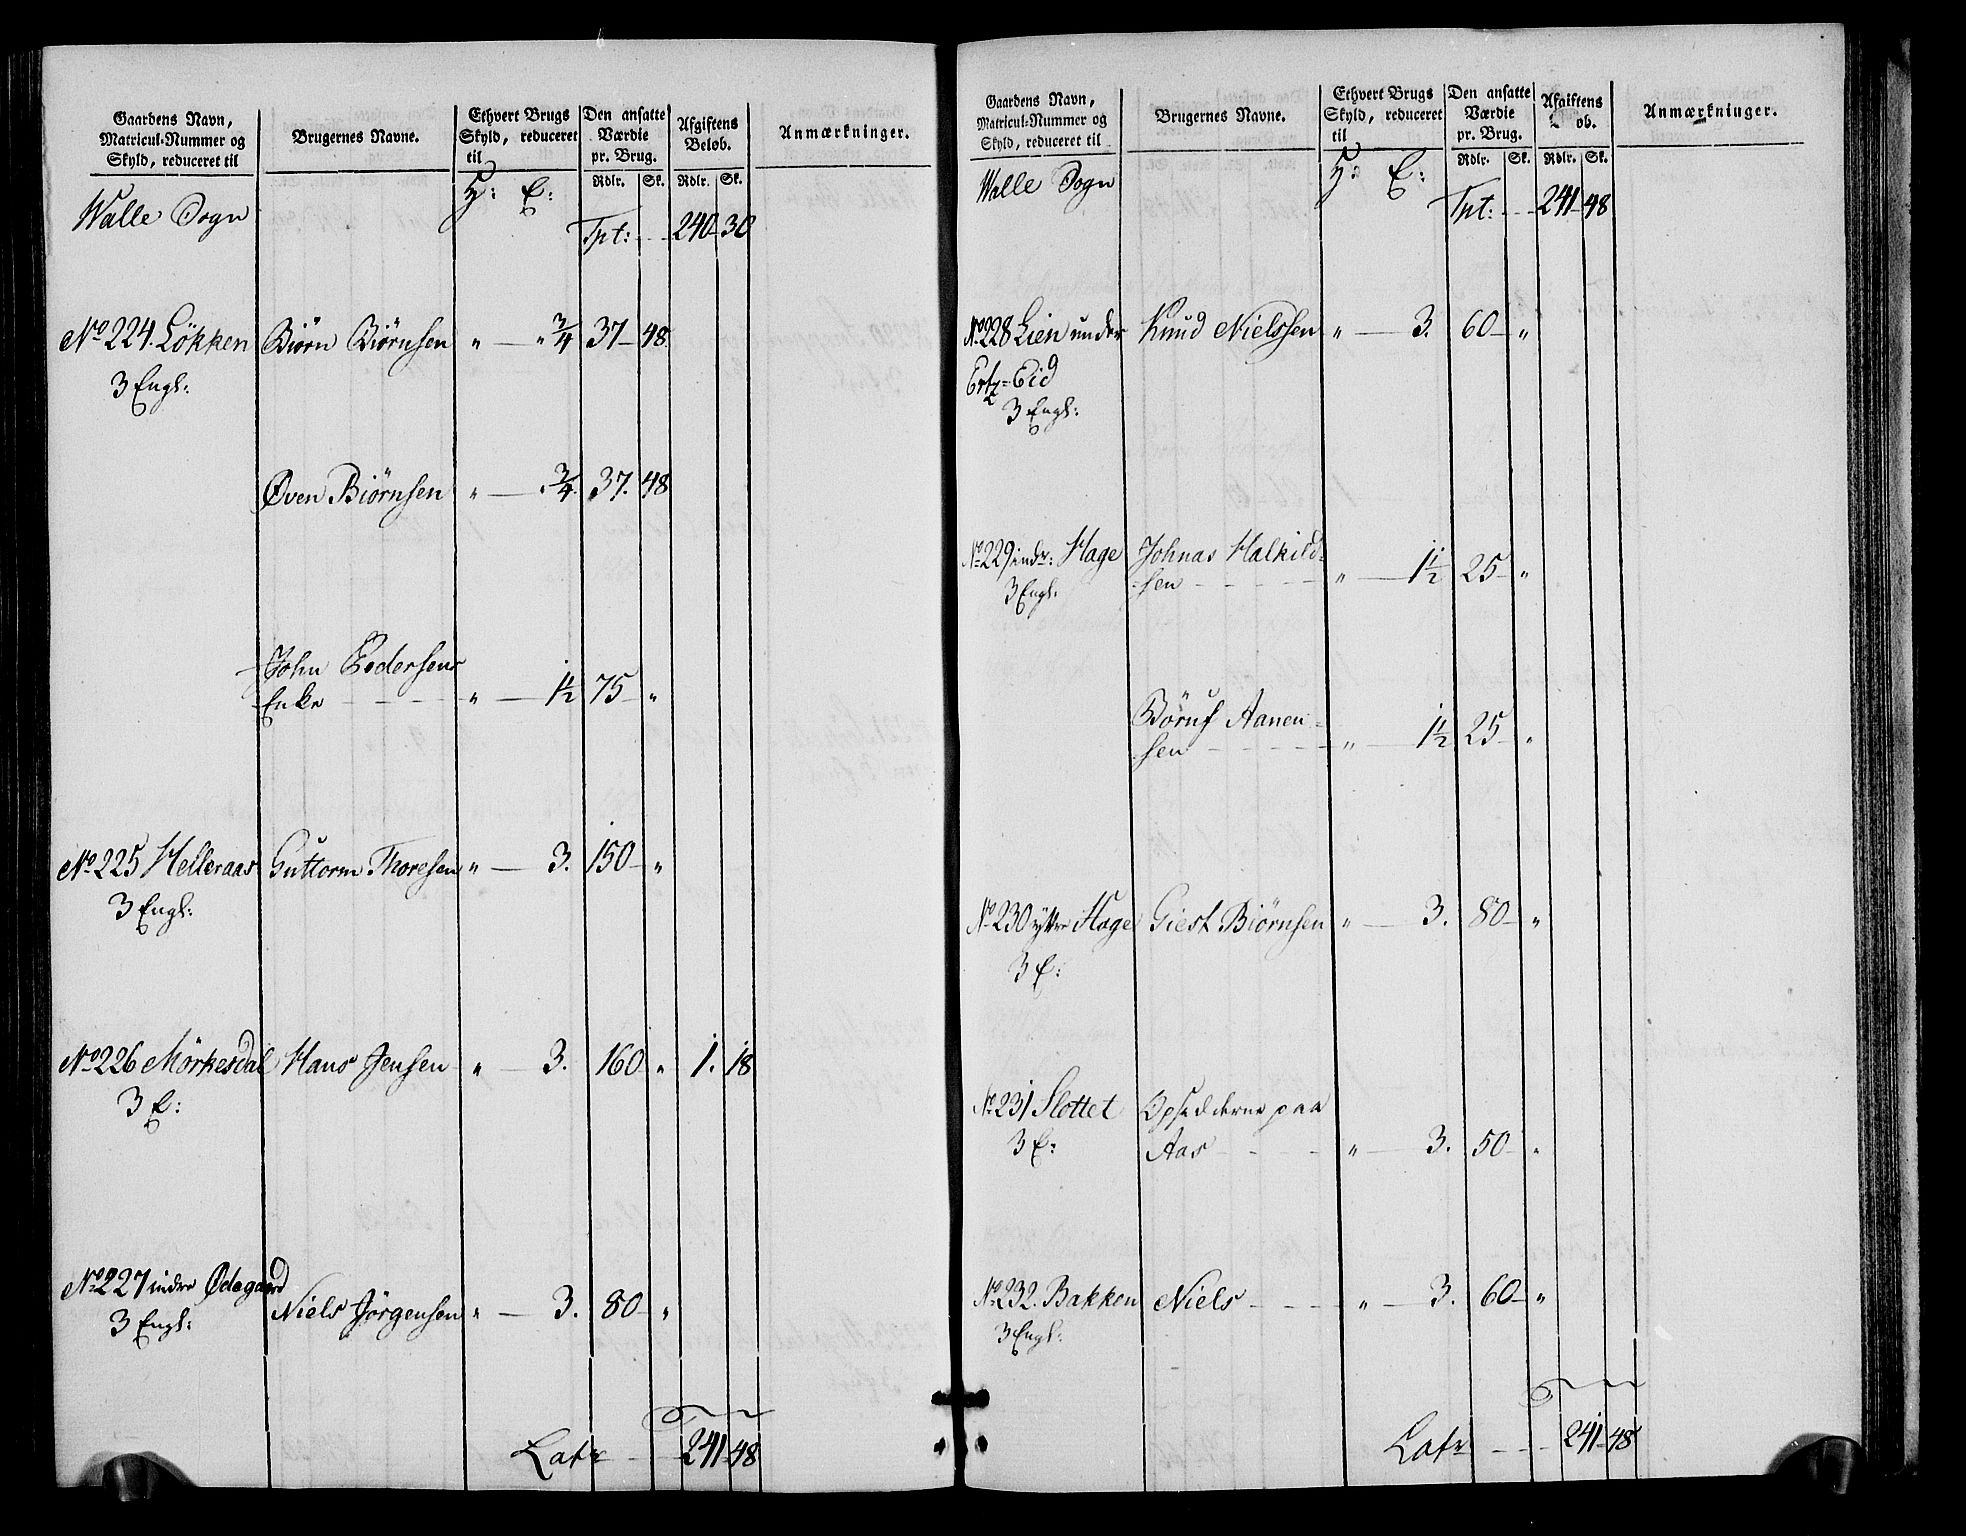 Gaardens Navn,
Matricul-Nummer og
Skyld, reduceret til
Brugernes Navne.
Ethvert Brugs
Skyld, reduceret
til
Den ansatte
Værdie
pr. Brug.
Rdlr. Sk.
Afgiftens
Beløb.
Rdlr. Sk.
Anmærkninger.
Walle Sogn
H: E:
Tpt: - - 240 - 30
No 224. Lökken Biörn Biörnsen " - " 3/4 37 - 48
3 Engl:
Øven Biörnsen " - " 3/4. 37. 48
John Pedersens
Enke - - - - " - 1 1/2 75 - "
No 225 Helleraas Guttorm Thoresen " - 3. 150 - "
3 Engl:
No 226 Mörkesdal Hans Jensen " - 3. 160 " 1. 18
3 E:
No 227 indre Ødegaard
Niels Jörgensen " - 3. 80 - "
3 Engl:
Latr - - 241 - 48
Gaardens Navn,
Matricul-Nummer og
Skyld, reduceret til
Brugernes Navne.
Ethvert Brugs
Skyld, reduceret
til
Den ansatte
Værdie
pr. Brug.
Rdlr. Sk.
Afgiftens
øb.
Rdlr. Sk.
Anmærkninger.
Walle Sogn
H: E:
Tpt: - - 241 - 48
No 228 Lien under Knud Nielssen " - 3. 60 - "
Ertz=Eid
3 Engl:
No 229 indr: Hage Johnas Halkild-
3 Engl. -sen - - - - " - 1 1/2 25 - "
Aanen-
-sen - - - - " - 1 1/2 25 - "
No 230 yttre Hage Giest Biörnsen " - 3. 80 - "
3 E:
No 231 Slottet Opsidderne paa
3 E: Aas - - - - " - 3. 50 - "
No 232. Bakken Niels - - - - " - 3. 60 - "
3 Engl:
Latr - - - 241 - 48